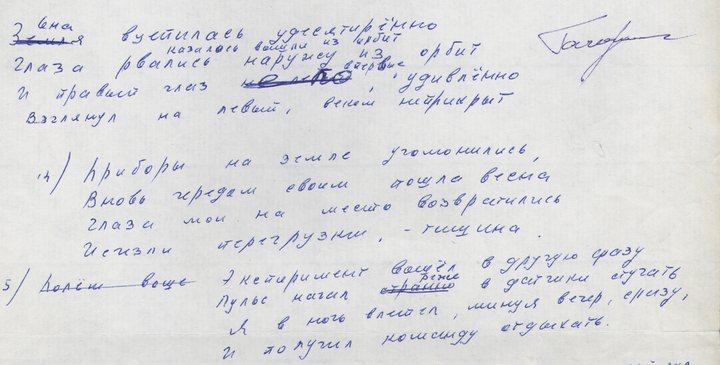 Она
Земля вцепилась удесятерённо
казалось вышли из орбит
Глаза рвались наружу из орбит
впервые
И правый глаз нелепо, удивлённо
Взглянул на левый, веком не прикрыт
Гагарин
14) Приборы на земле угомонились,
Вновь чередом своим пошла весна
Глаза мои на место возвратились
Исчезли перегрузки, - тишина.
5) Полёт вош Эксперимент вошёл в другую фазу
реже
Пульс начал странно в датчики стучать
Я в ночь влетел, минуя вечер, сразу,
И получил команду отдыхать.